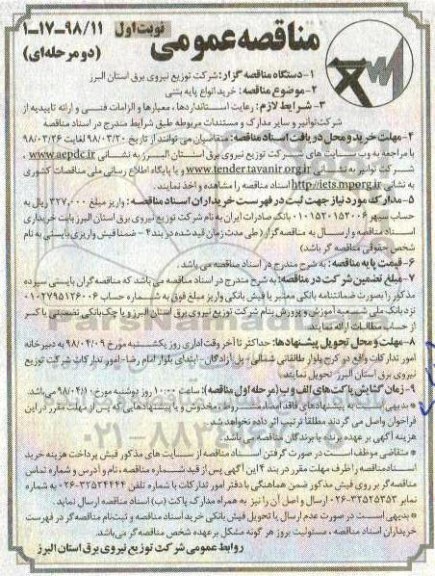 مناقصه عمومی
نوبت اول
۹۸/۱۱-۱۷-۱
(دو مرحله‌ای)
۱-دستگاه مناقصه گزار: شرکت توزیع نیروی برق استان البرز
۲-موضوع مناقصه: خرید انواع پایه بتنی
۳- شرایط لازم: رعایت استانداردها، معیارها و الزامات فنی و ارائه تاییدیه از
شرکت توانیر و سایر مدارک و مستندات مربوطه طبق شرایط مندرج در اسناد مناقصه
۴-مهلت خرید و محل دریافت اسناد مناقصه: متقاضیان می توانند از تاریخ ۹۸/۰۳/۲۰ لغایت ۹۸/۰۳/۲۶
با مراجعه به وب سایت های شرکت توزیع نیروی برق استان البرز به نشانی www.aepdc.ir ،
شرکت توانیر به نشانی www.tender.tavanir.org.ir و یا پایگاه اطلاع رسانی ملی مناقصات کشوری
به نشانی http://iets.mporg.ir اسناد مناقصه را مشاهده و اخذ نمایند.
۵-مدارک مورد نیاز جهت ثبت در فهرست خریداران اسناد مناقصه: واریز مبلغ ۳۲۷,۰۰۰ ریال به
حساب سپهر ۰۱۰۱۵۲۰۱۵۲۰۰۶ بانک صادرات ایران به نام شرکت توزیع نیروی برق استان البرز بابت خریداری
اسناد مناقصه و ارسال به مناقصه گزار (طی مدت زمان قید شده در بند ۴ - ضمنا فیش واریزی بایستی به نام
شخص حقوقی مناقصه گر باشد)
۶-قیمت پایه مناقصه: به شرح مندرج در اسناد مناقصه می باشد.
۷-مبلغ تضمین شرکت در مناقصه: به شرح مندرج در اسناد مناقصه می باشد که مناقصه گران بایستی سپرده
مذکور را بصورت ضمانتنامه بانکی معتبر یا فیش بانکی واریز مبلغ فوق به شماره حساب ۰۱۰۲۷۹۵۱۲۶۰۰۶
نزد بانک ملی شعبه آموزش و پرورش بنام شرکت توزیع نیروی برق استان البرز و یا چک بانکی تضمینی یا کسر
از حساب مطالبات ارائه نمایند.
۸-مهلت و محل تحویل پیشنهادها: حداکثر تا آخر وقت اداری روز یکشنبه مورخ ۹۸/۰۴/۰۹ به دبیرخانه
امور تدارکات واقع در کرج بلوار طالقانی شمالی - پل آزادگان - ابتدای بلوار امام رضا - امور تدارکات شرکت توزیع
نیروی برق استان البرز تحویل نمایند.
۹-زمان گشایش پاکت های الف و ب (مرحله اول مناقصه): ساعت ۱۰:۰۰ روز دوشنبه مورخ ۹۸/۰۴/۱۰ می باشد.
* بدیهی است به پیشنهادهای فاقد امضا، مشروط، مخدوش و یا پیشنهادهایی که پس از مهلت مقرر در این
فراخوان واصل می گردند مطلقا ترتیب اثر داده نخواهد شد.
هزینه آگهی بر عهده برنده یا برندگان مناقصه می باشد.
* متقاضی موظف است در صورت گرفتن اسناد مناقصه از سایت های مذکور فیش پرداخت هزینه خرید
اسناد مناقصه را ظرف مهلت مقرر در بند ۴ این آگهی پس از قید شماره مناقصه، نام و آدرس و شماره تماس
مناقصه گر بر روی فیش مذکور ضمن هماهنگی با دفتر امور تدارکات با شماره تلفن ۳۲۵۲۴۴۴۴-۰۲۶ به شماره
نمابر ۳۲۵۲۵۳۵۳-۰۲۶ ارسال و اصل آن را نیز به همراه مدارک پاکت (ب) اسناد مناقصه ارسال نماید.
* بدیهی است در صورت عدم ارسال یا تحویل فیش بانکی خرید اسناد مناقصه و ثبت نام مناقصه گر در فهرست
خریداران اسناد مناقصه ، مسئولیت بروز هر گونه مشکل بر عهده شخص مناقصه گر می باشد.
روابط عمومی شرکت توزیع نیروی برق استان البرز